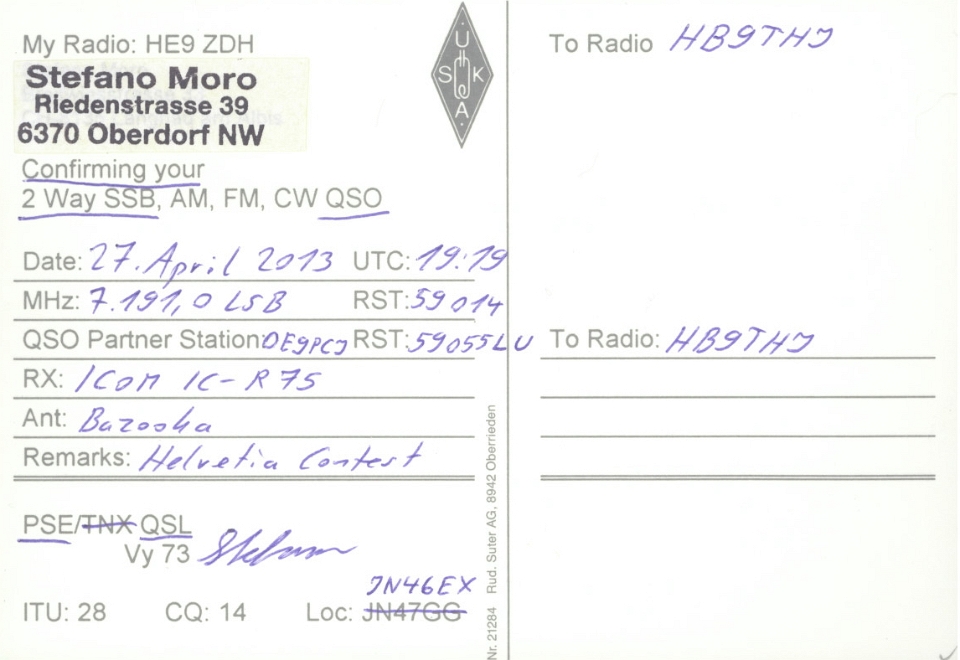 My Radio: HE9 ZDH
Stefano Moro
Riedenstrasse 39
6370 Oberdorf NW
Confirming your
2 Way SSB, AM, FM, CW QSO
Date: 27. April 2013 UTC: 19:19
MHz: 7.191,0 LSB RST: 59 014
QSO Partner Station: OE9PCJ RST: 59055LU
RX: ICOM IC-R75
Ant: Bazooka
Remarks: Helvetia Contest
PSE/TNX QSL
Vy 73 Stefano
JN46EX
ITU: 28 CQ: 14 Loc: JN47GG
USKA
To Radio HB9THJ
To Radio: HB9THJ
Nr. 21284 Rud. Suter AG, 8942 Oberrieden